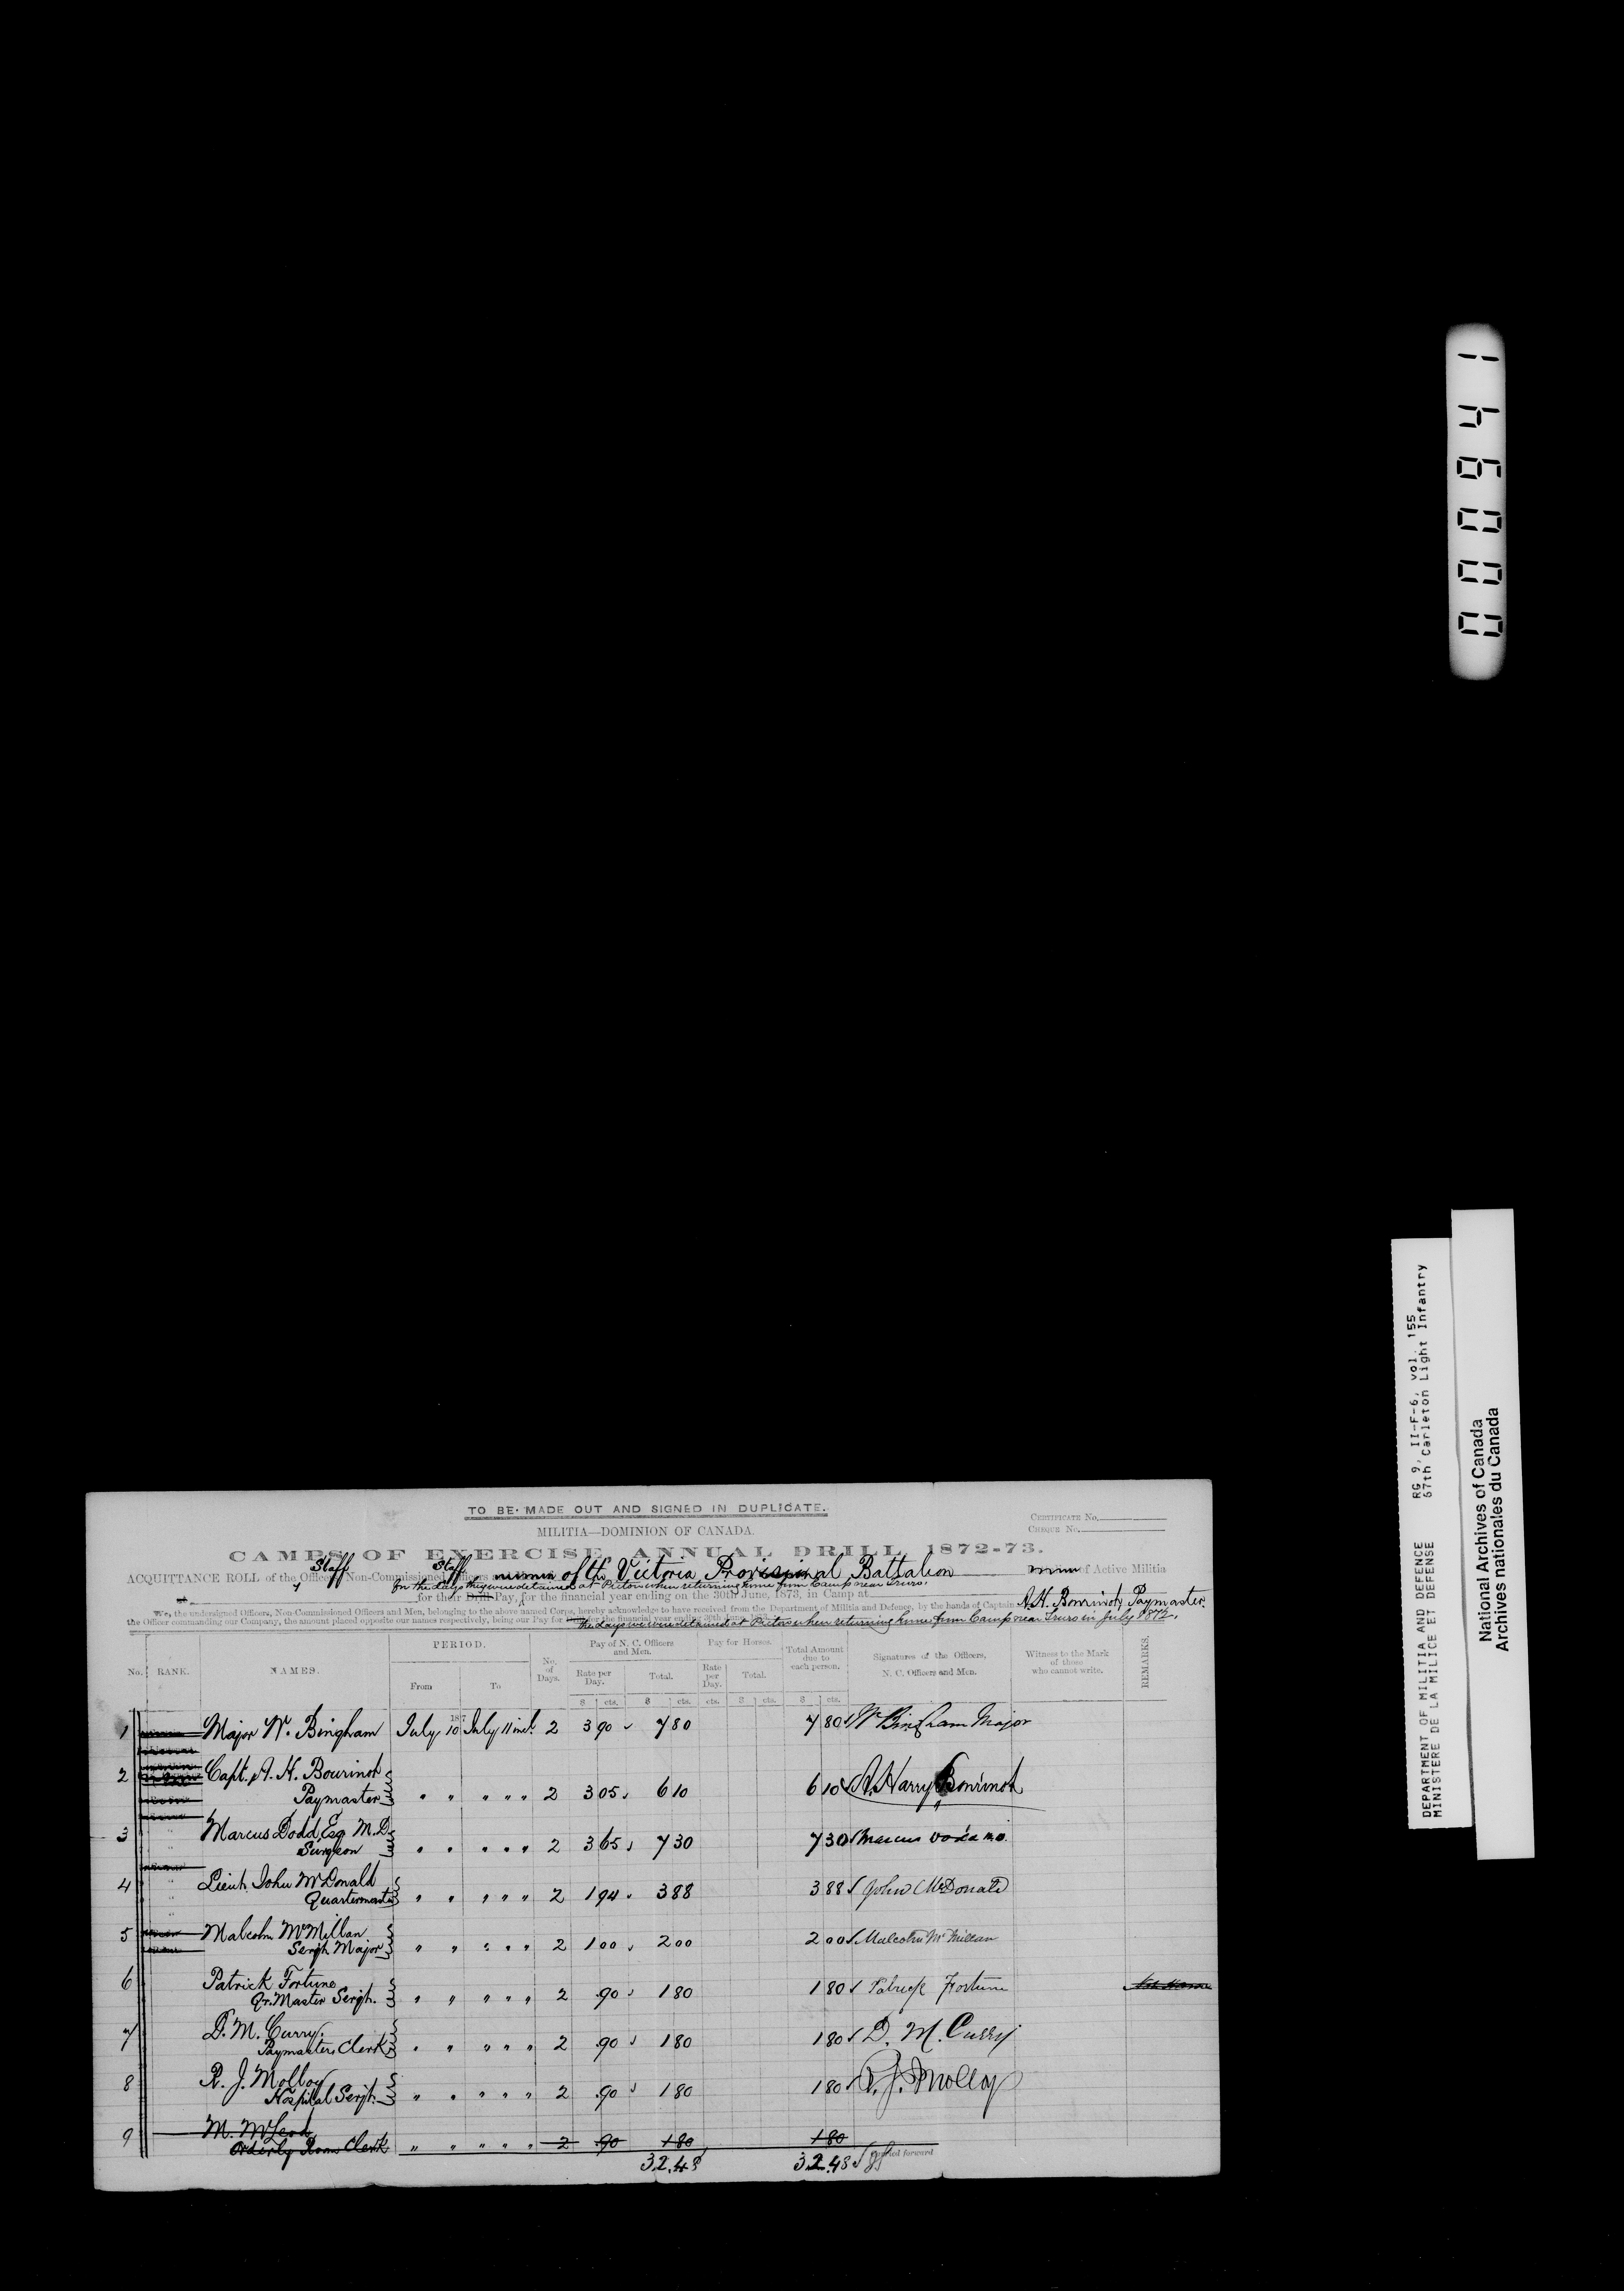 TO BE MADE OUT AND SIGNED IN DUPLICATE.
MILITIA—DOMINION OF CANADA.
CERTIFICATE No.
CHEQUE No.
CAMPS OF EXERCISE, ANNUAL DRILL, 1872-73.
Staff Staff
ACQUITTANCE ROLL of the Officers, Non-Commissioned Officers of the Victoria Provisional Battalion of Active Militia
for the days they were detained at Pictou when returning home from Camp near Truro.
for their Drill Pay, for the financial year ending on the 30th June, 1873, in Camp at
We, the undersigned Officers, Non-Commissioned Officers and Men, belonging to the above named Corps, hereby acknowledge to have received from the Department of Militia and Defence, by the hands of Captain A. H. Bourinot, Paymaster
the Officer commanding our Company, the amount placed opposite our names respectively, being our Pay for the financial year ending 30th June
the days we were detained at Pictou when returning home from Camp near Truro in July 1872.
No. RANK. NAMES. PERIOD. From To No. of Days. Pay of N. C. Officers and Men. Rate per Day. Total. Pay for Horses. Rate per Day. Total. Total Amount due to each person. Signatures of the Officers, N. C. Officers and Men. Witness to the Mark of those who cannot write. REMARKS.
$ cts. $ cts. cts. $ cts. $ cts.
187
1 Major W. Bingham July 10 July 11 incl. 2 3 90 7 80 7 80 W Bingham Major
2 Capt. A. H. Bourinot
Paymaster " " " " " 2 3 05 6 10 6 10 A. Harry Bourinot
3 Marcus Dodd, Esq M.D.
Surgeon " " " " " 2 3 65 7 30 7 30 Marcus Dodd M.D.
4 Lieut. John McDonald
Quartermaster " " " " " 2 1 94 3 88 3 88 John McDonald
5 Malcolm McMillan
Sergt. Major " " " " " 2 1 00 2 00 2 00 Malcolm McMillan
6 Patrick Fortune
Qr. Master Sergt. " " " " " 2 .90 1 80 1 80 Patrick Fortune
7 D. M. Curry
Paymasters Clerk " " " " " 2 .90 1 80 1 80 D. M. Curry
8 R. J. Molloy
Hospital Sergt. " " " " " 2 .90 1 80 1 80 R. J. Molloy
9 M. McLeod
Orderly Room Clerk " " " " " 2 .90 1 80 1 80
32.48 32.48 carried forward
000941
DEPARTMENT OF MILITIA AND DEFENCE RG 9, II-F-6, vol. 155
MINISTERE DE LA MILICE ET DEFENSE 67th Carleton Light Infantry
National Archives of Canada
Archives nationales du Canada